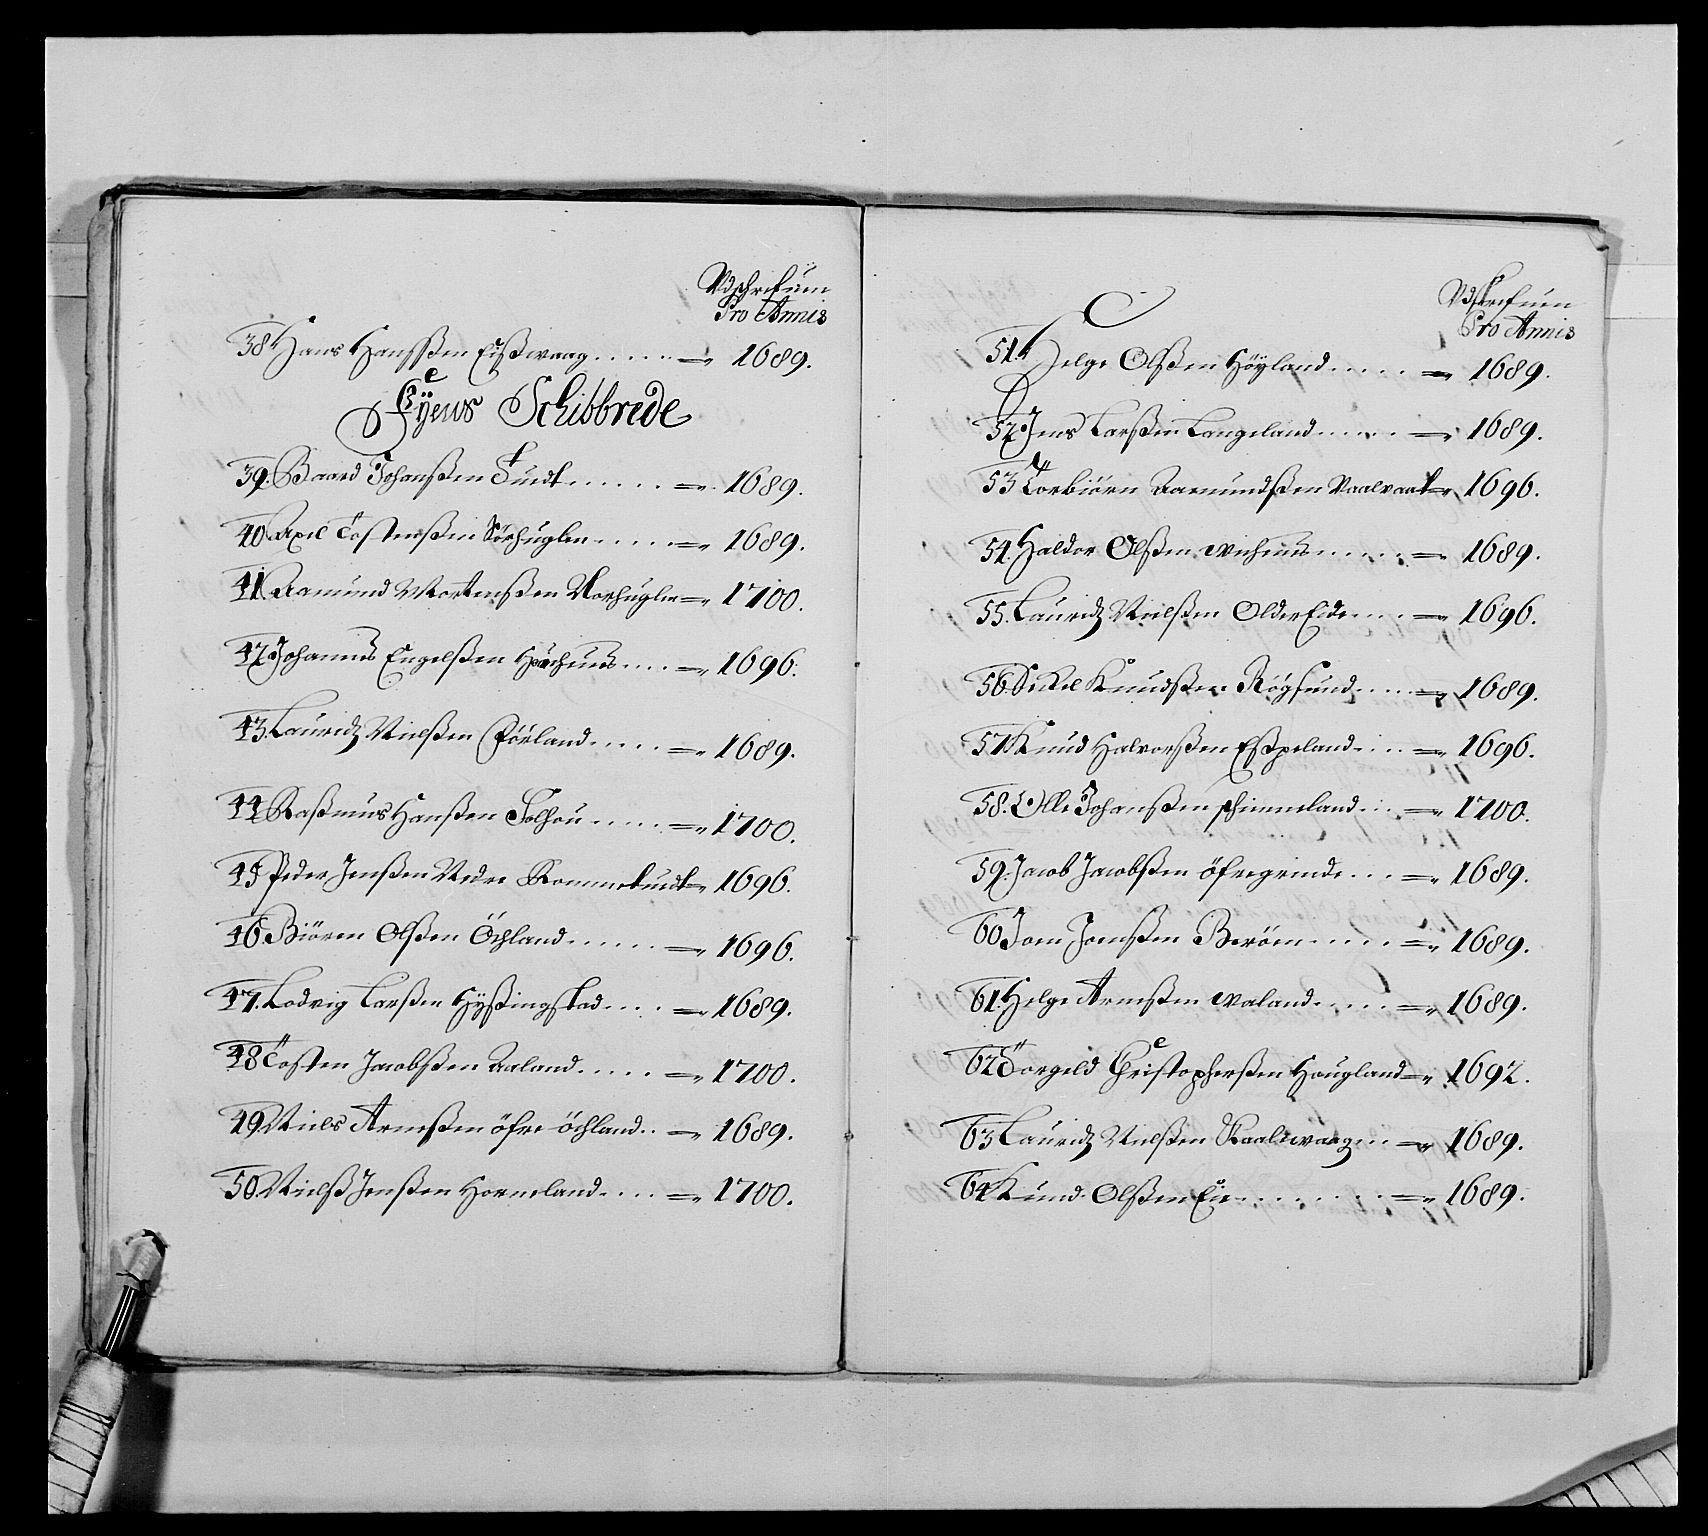 Udschrefuen
Pro Annis
38 Hans Hansßen Eißwaag ..... 1689.
Fÿens Schibbrede
39. Baard Johanßen Sundt ...... 1689.
40 Axel Tostenßen Sörhuglen ..... 1689.
41 Aamund Mortenßen Norhuglen 1700.
42 Johannes Engelßen 1696.
43. Lauridz Nielßen Förland ..... 1689.
44 Raßmus Hanßen Solhou ..... 1700.
45 Peder Jenßen Nedre 1696.
46. Biören Olßen Öchland ...... 1696.
47. Lodvig Larßen Hÿßingstad .... 1689.
48 Tosten Jacobßen Aaland ..... 1700.
49 Niels Arneßen öfre öchland .. 1689.
50. Nielß Jenßen Horneland .... 1700.
Udskrefuen
Pro Annis
51. Helge Olßen Höyland ..... 1689.
52 Jens Larßen Langeland ..... 1689.
53 Torbiörn Aamundßen 1696.
54. Haldor Olßen ..... 1689.
55. Lauridz Nielßen OlderEide .... 1696.
56. Sichel Knudßen Rögsund .... 1689.
57 Knud Halvorßen Eßpeland .... 1696.
58. Olle Johanßen .... 1700.
59. Jacob Jacobßen öfregrinde ... 1689.
60 Joen Joenßen ..... 1689.
61. Helge Arneßen waland ..... 1689.
62 Torgeld Christopherßen Hougland 1692.
63 Lauridz Nielßen ... 1689.
64 Knud Olßen Eie ........ 1689.